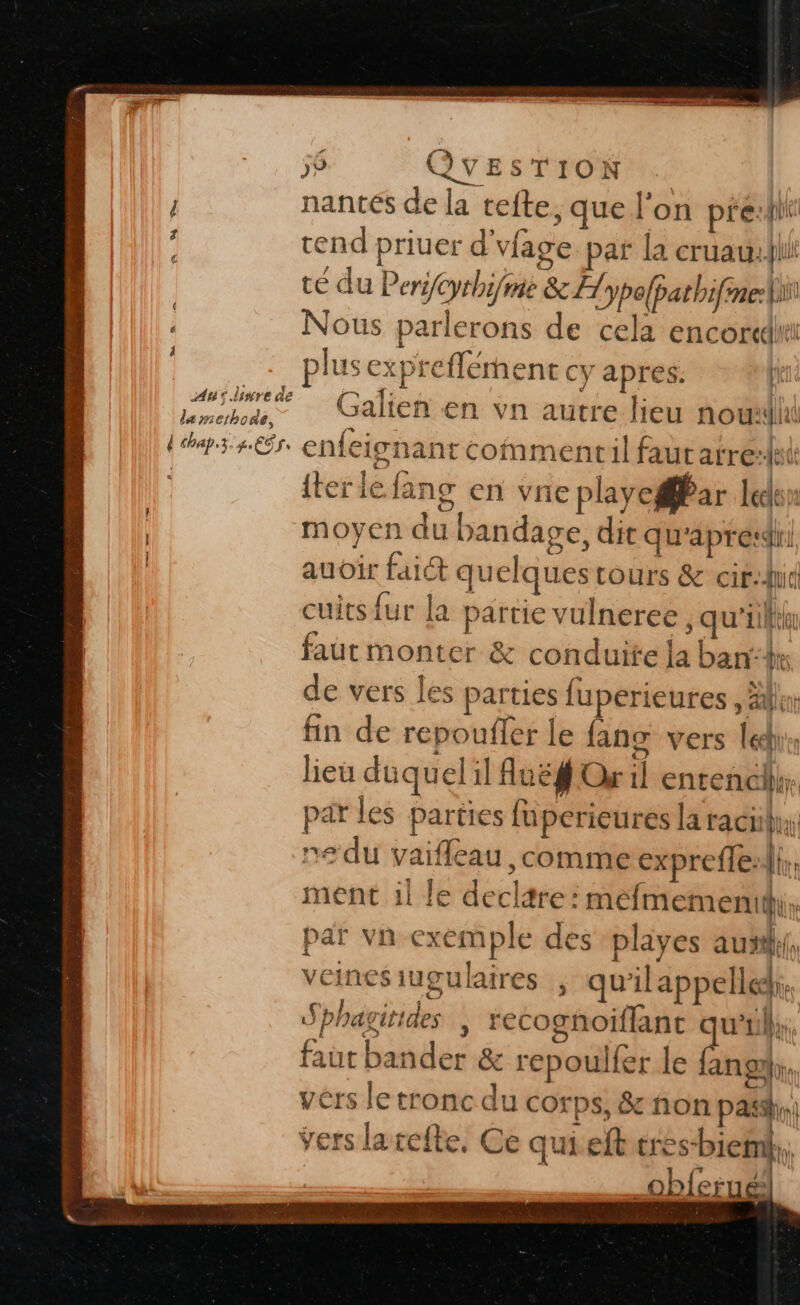 56 QVESTION
nantes de la teſte, que l'on pre-
tend priuer d'vſage par la cruau-
té du Periſcythiſme & Hypoſpathiſme
Nous parlerons de cela encore
plus expreſſément cy apres.
Galien en vn autre lieu nous
Au 5. liure de
la methode,
chap. 3. 4. & 5.
enſeignant comment il faut arre-
ſter le ſang en vne playe Par le
moyen du bandage, dit qu'apres
auoir faict quelques tours & cir-
cuits ſur la partie vulneree, qu'il
faut monter & conduire la ban-
de vers les parties ſuperieures, à
fin de repouſſer le ſang vers le
lieu duquel il fluë Or il entend
par les parties ſuperieures la raci-
ne du vaiſſeau, comme expreſſe-
ment il le declare: meſmement
par vn exemple des playes aux
veines iugulaires, qu'il appelle
Sphagitides, recognoiſſant qu'il
faut bander & repoulſer le ſang
vers le tronc du corps, & non pas
vers la teſte. Ce qui eſt tres-bien
obſerué